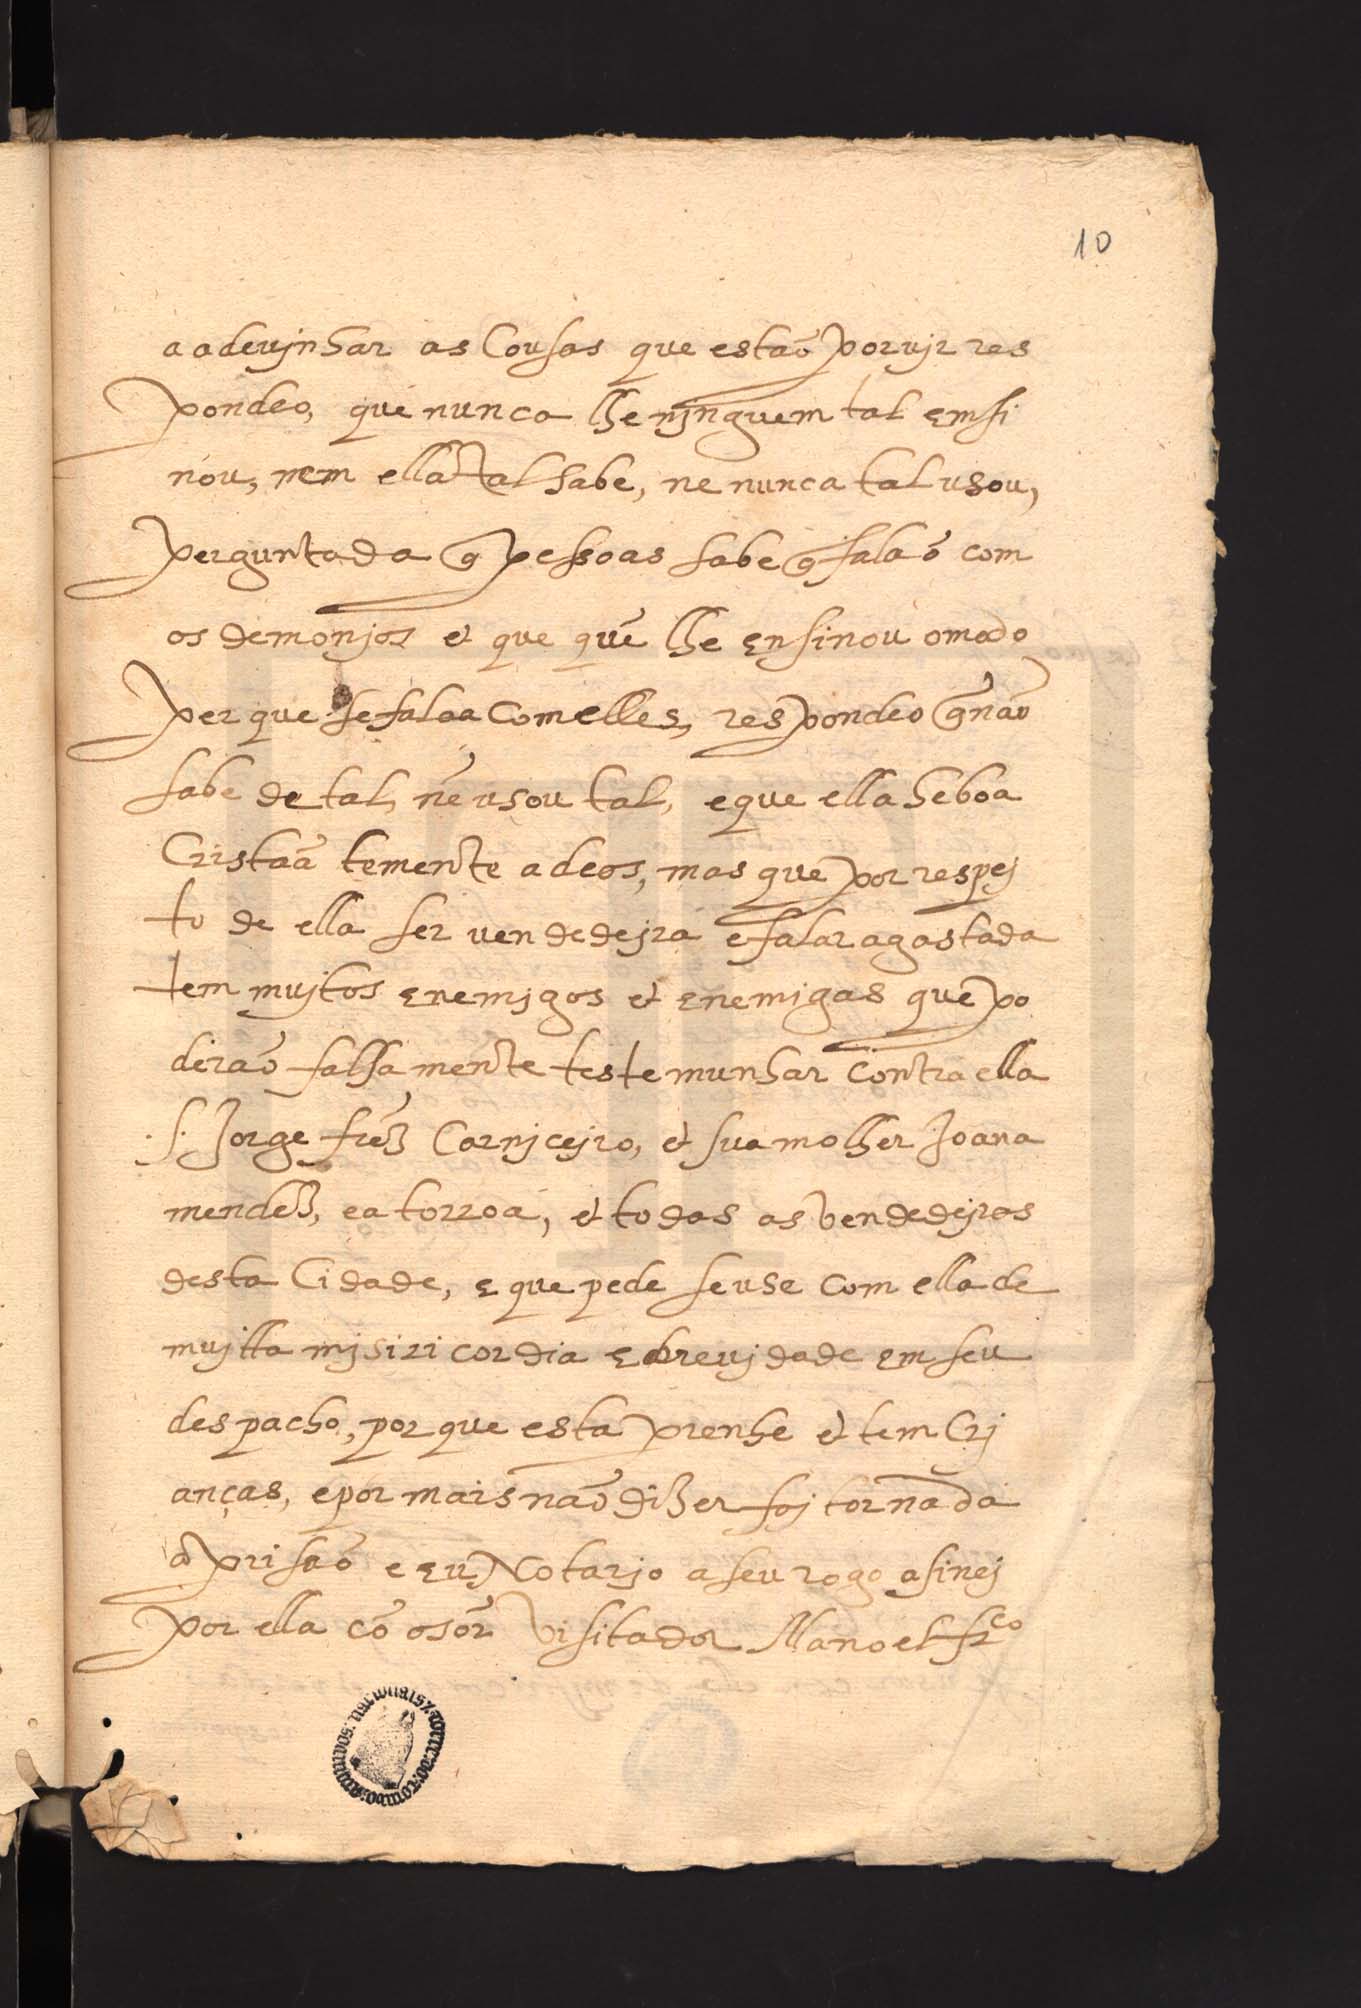 10
a adevjnhar as Cousas que estaõ por vjr res
pondeo, que nunca lhe njnguem tal emsi
nou, nem ella tal sabe, ne nunca tal usou,
perguntada q̃ pessoas sabe q̃ falaõ com
os demonjos et que quẽ lhe ensinou o modo
per que se falaa com elles, respondeo q̃ naõ
sabe de tal, nẽ usou tal, e que ella he boa
Cristaã temente a deos, mas que por respej
to de ella ser vendedejra e falar agastada
tem mujtos enemjgos et enemigas que po
deraõ falsamente testemunhar Contra ella
.s. Jorge frẽz Carnjcejro, et sua molher Joana
mendez, e a torroa, et todas as vendedejras
desta Cidade, e que pede se use com ella de
mujtta mjsiricordia e brevjdade em seu
despacho, por que esta prenhe et tem Crj
anças, e por mais naõ dizer foj tornada
a prisaõ e eu Notarjo a seu rogo asinej
por ella cõ o sõr visitador Manoel frco